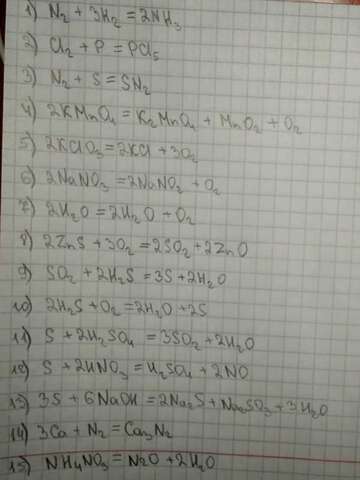 1) N₂ + 3H₂ = 2NH₃
2) Cl₂ + P = PCl₅
3) N₂ + S = SN₂
4) 2KMnO₄ = K₂MnO₄ + MnO₂ + O₂
5) 2KClO₃ = 2KCl + 3O₂
6) 2NaNO₃ = 2NaNO₂ + O₂
7) 2H₂O = 2H₂O + O₂
8) 2ZnS + 3O₂ = 2SO₂ + 2ZnO
9) SO₂ + 2H₂S = 3S + 2H₂O
10) 2H₂S + O₂ = 2H₂O + 2S
11) S + 2H₂SO₄ = 3SO₂ + 2H₂O
12) S + 2HNO₃ = H₂SO₄ + 2NO
13) 3S + 6NaOH = 2Na₂S + Na₂SO₃ + 3H₂O
14) 3Ca + N₂ = Ca₃N₂
15) NH₄NO₃ = N₂O + 2H₂O